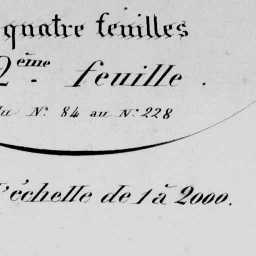 quatre feuilles
2ème feuille.
du N° 84 au N° 228
l'échelle de 1 à 2000.